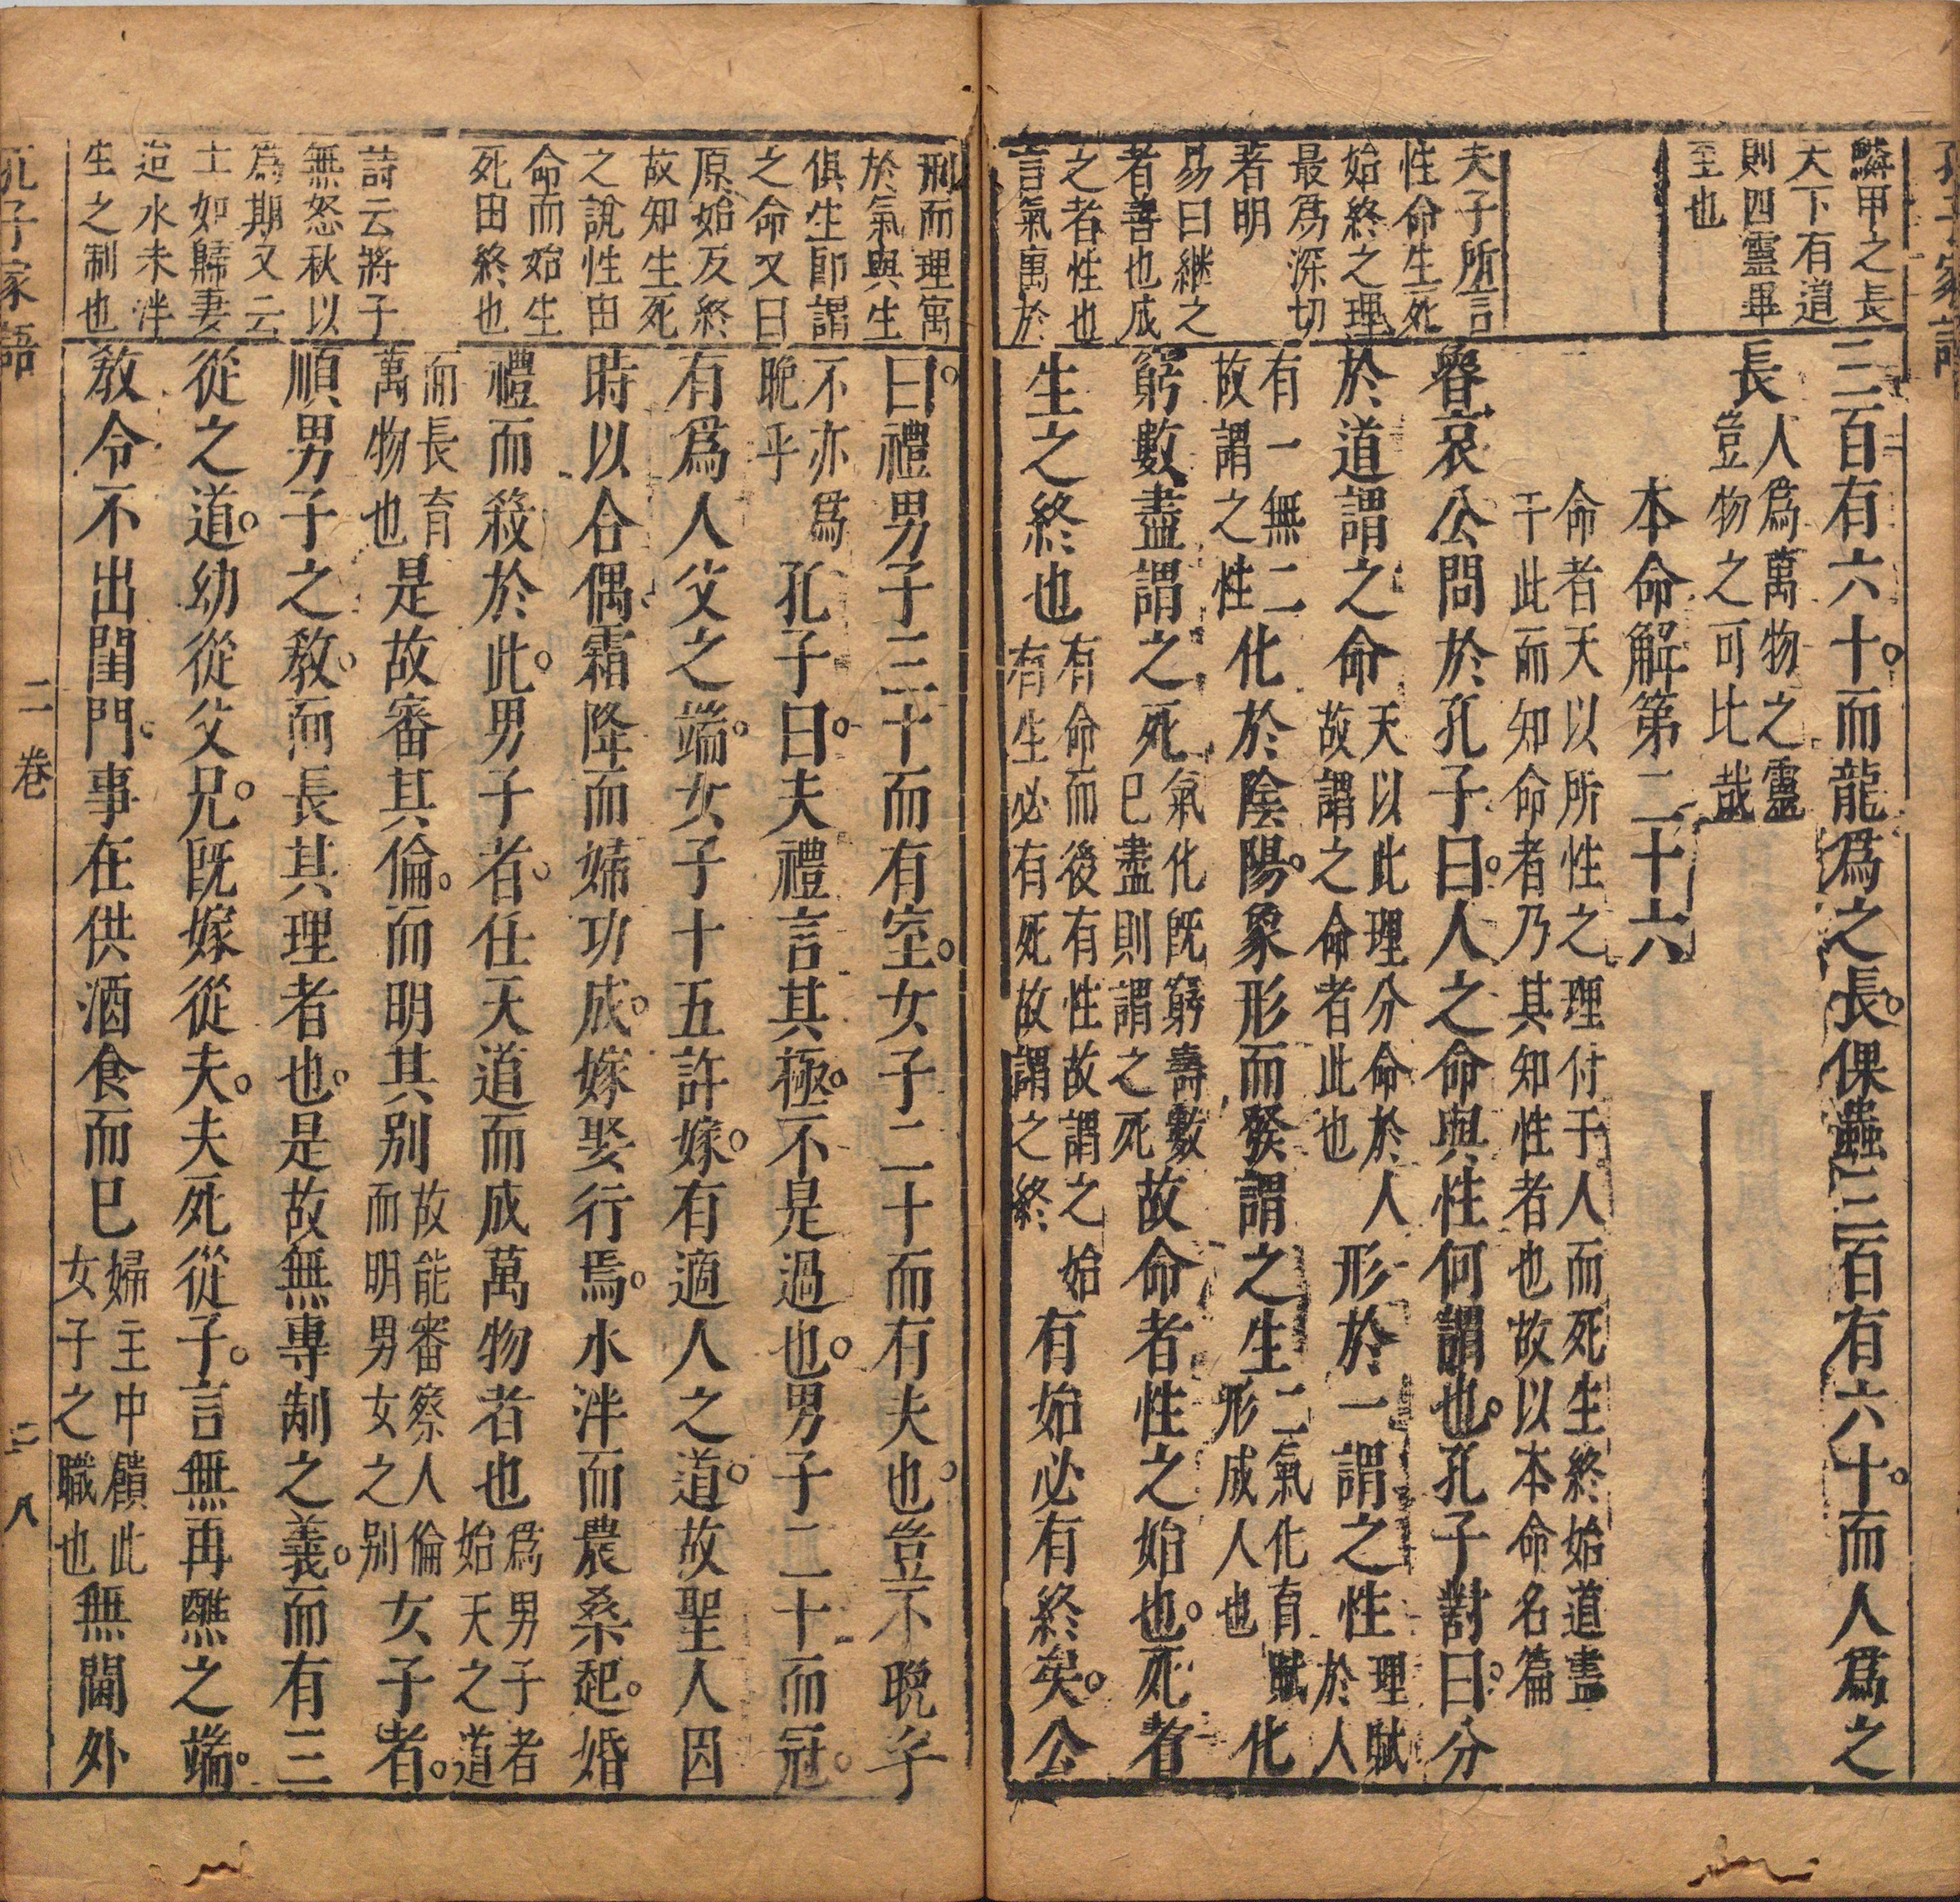 孔子家語
鱗甲之長
天下有道
則四靈畢
至也
夫子所言
性命生死
始終之理
最爲深切
著明
易曰継之
者善也成
之者性也
言氣寓於
三百有六十而龍爲之長倮蟲三百有六十而人爲之
長人爲萬物之靈豈物之可比哉
本命解第二十六
命者天以所性之理付于人而死生終始道盡
于此而知命者乃其知性者也故以本命名篇
魯哀公問於孔子曰人之命與性何謂也孔子對曰分
於道謂之命天以此理分命於人故謂之命者此也形於一謂之性理賦於人
有一無二故謂之性化於陰陽象形而發謂之生二氣化育賦形成人也化
窮數盡謂之死氣化既窮壽數已盡則謂之死故命者性之始也死者
生之終也有命而後有性故謂之始有生必有死故謂之終有始必有終矣公
刑而理寓
於氣與生
俱生卽謂
之命又曰
原始反終
故知生死
之說性由
命而始生
死由終也
詩云將子
無怒秋以
爲期又云
士如歸妻
迨氷未泮
生之制也
曰禮男子三十而有室女子二十而有夫也豈不晚乎
不亦爲晚乎孔子曰夫禮言其極不是過也男子二十而冠
有爲人父之端女子十五許嫁有適人之道故聖人因
時以合偶霜降而婦功成嫁娶行焉氷泮而農桑起婚
禮而殺於此男子者任天道而成萬物者也爲男子者始天之道
而長育萬物也是故審其倫而明其别故能審察人倫而明男女之别女子者
順男子之教而長其理者也是故無專制之義而有三
從之道幼從父兄既嫁從夫夫死從子言無再醮之端
教令不出閨門事在供酒食而已婦主中饋此女子之職也無閫外
孔子家語
二卷
二八